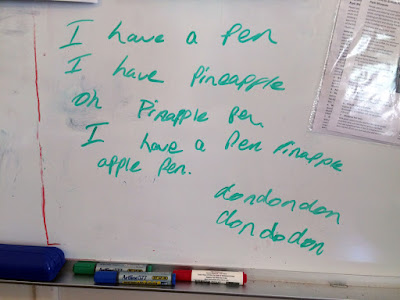 I have a pen
I have Pineapple
oh Pinapple pen
I have a Pen Pinapple
apple pen.
dondondon
dondodon